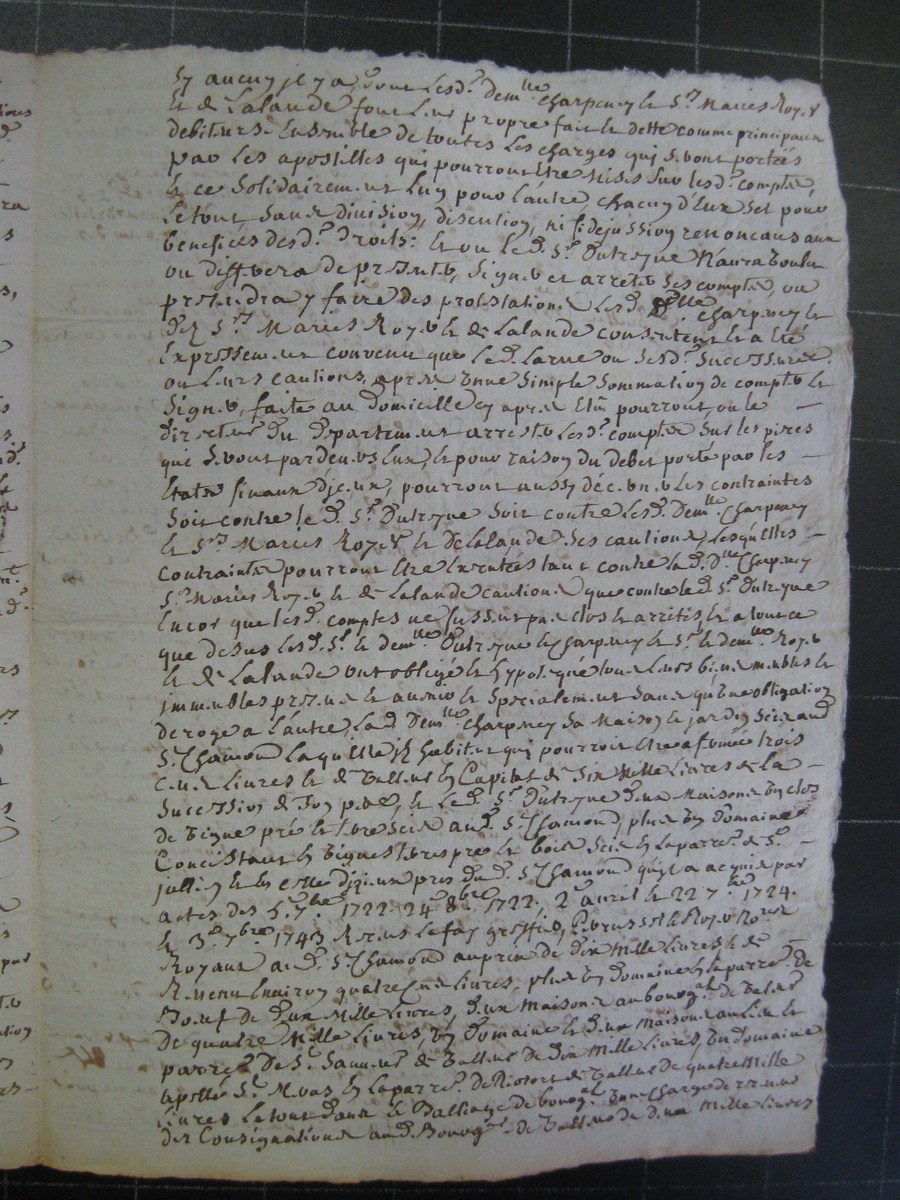 sy aucun il y a, dont lesd. demlle Charpeney et Srs Maries Roy.
et de Lalande font leur propre fait et dette comme principaux
debiteurs Ensemble de toutes les charges qui seront portées
par les apostilles qui pourront Etre mises sur lesd. comptes,
Et ce Solidairement L'un pour l'autre, chacun d'Eux seul pour
Le tout sans division, discution, ni fidejussion renoncans aux
benefices desd. droits: et ou le d. Sr Dutreyve N'aura voulu
ou differera de presenter, signer et arreter ses comptes, ou
pretendra y faire des protestations Lesd. Dlle Charpeney et
Srs Maries Roy et de Lalande consentent Et a Eté
Expressement convenu que Le d. Larue ou sesd. successeurs
ou Leurs cautions, apres Une simple sommation de compter et
signer, faite au Domicille cy apres Elu pourront, ou le
directeur Du Departement arrester Lesd. comptes sur les pieces
qui seront pardevers Eux, et pour raison du debet porté par les
Etats finaux d'iceux, pourront aussy décerner Les contraintes
soit contre led. Sr Dutreyve soit contre lesd. demlle Charpeney
et Srs Maries Roy et de Lalande ses cautions, Lesquelles
contraintes pourront Etre Executées tant contre lad. Dlle Charpeney
Srs Maries Roy et de Lalande cautions que contre led. Sr Dutreyve
Encor que lesd. comptes ne fussent pas clos et arretés, et a tout ce
que dessus Lesd. Sr et demlle Dutreyve et Charpeney et Sr et demlle Roy
et de Lalande ont obligé et hypotequé tous Leurs biens meubles et
immeubles presens et avenir et specialement sans qu'Une obligation
deroge a L'autre, La d. Demlle Charpeney sa Maison et jardin scis aud.
St Chamond laquelle Elle habite et qui pourroit Etre afermée trois
Cens Livres et de Valleur En Capital de Six Mille Livres de la
Succession de son pere, et Led. Sr Dutreyve deux Maisons Un clos
de Vigne pré et terre scis aud. St Chamond, plus Un Domaine
Concistant En Vignes terres prés et bois scis En la parre. de St
jullien et En celle d'Izieux pres dud. St Chamond qu'il a acquis par
actes des 5. 7bre 1722. 24 8bre 1722, 2 avril et 22 7bre 1724.
et 3e 7bre 1743 Recus Lefay greffier, et Roy Nores
Royaux aud. St Chamond au prix de Dix Mille Livres et de
Revenu Environ quatre Cens Livres, plus Un Domaine En la parre. de
Boeuf de Deux Mille Livres, deux Maisons au bourg de valeur
De quatre Mille Livres, Un Domaine et Deux Maisons au Lieu et
parre. De St Sauveur de Valleur de Dix Mille Livres, Un Domaine
apellé En la parre. de Riotort de Valleur de quatre Mille
Livres Le tout dans le Balliage de bourg Une Charge de receveur
des Consignations aud. Bourg de Valleur de deux Mille Livres